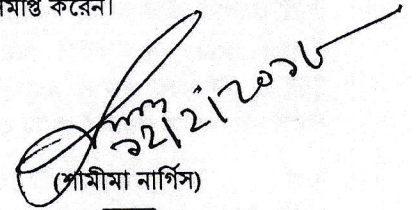 সমাপ্ত করেন।
১২/২/২০১৮
(শামীমা নার্গিস)